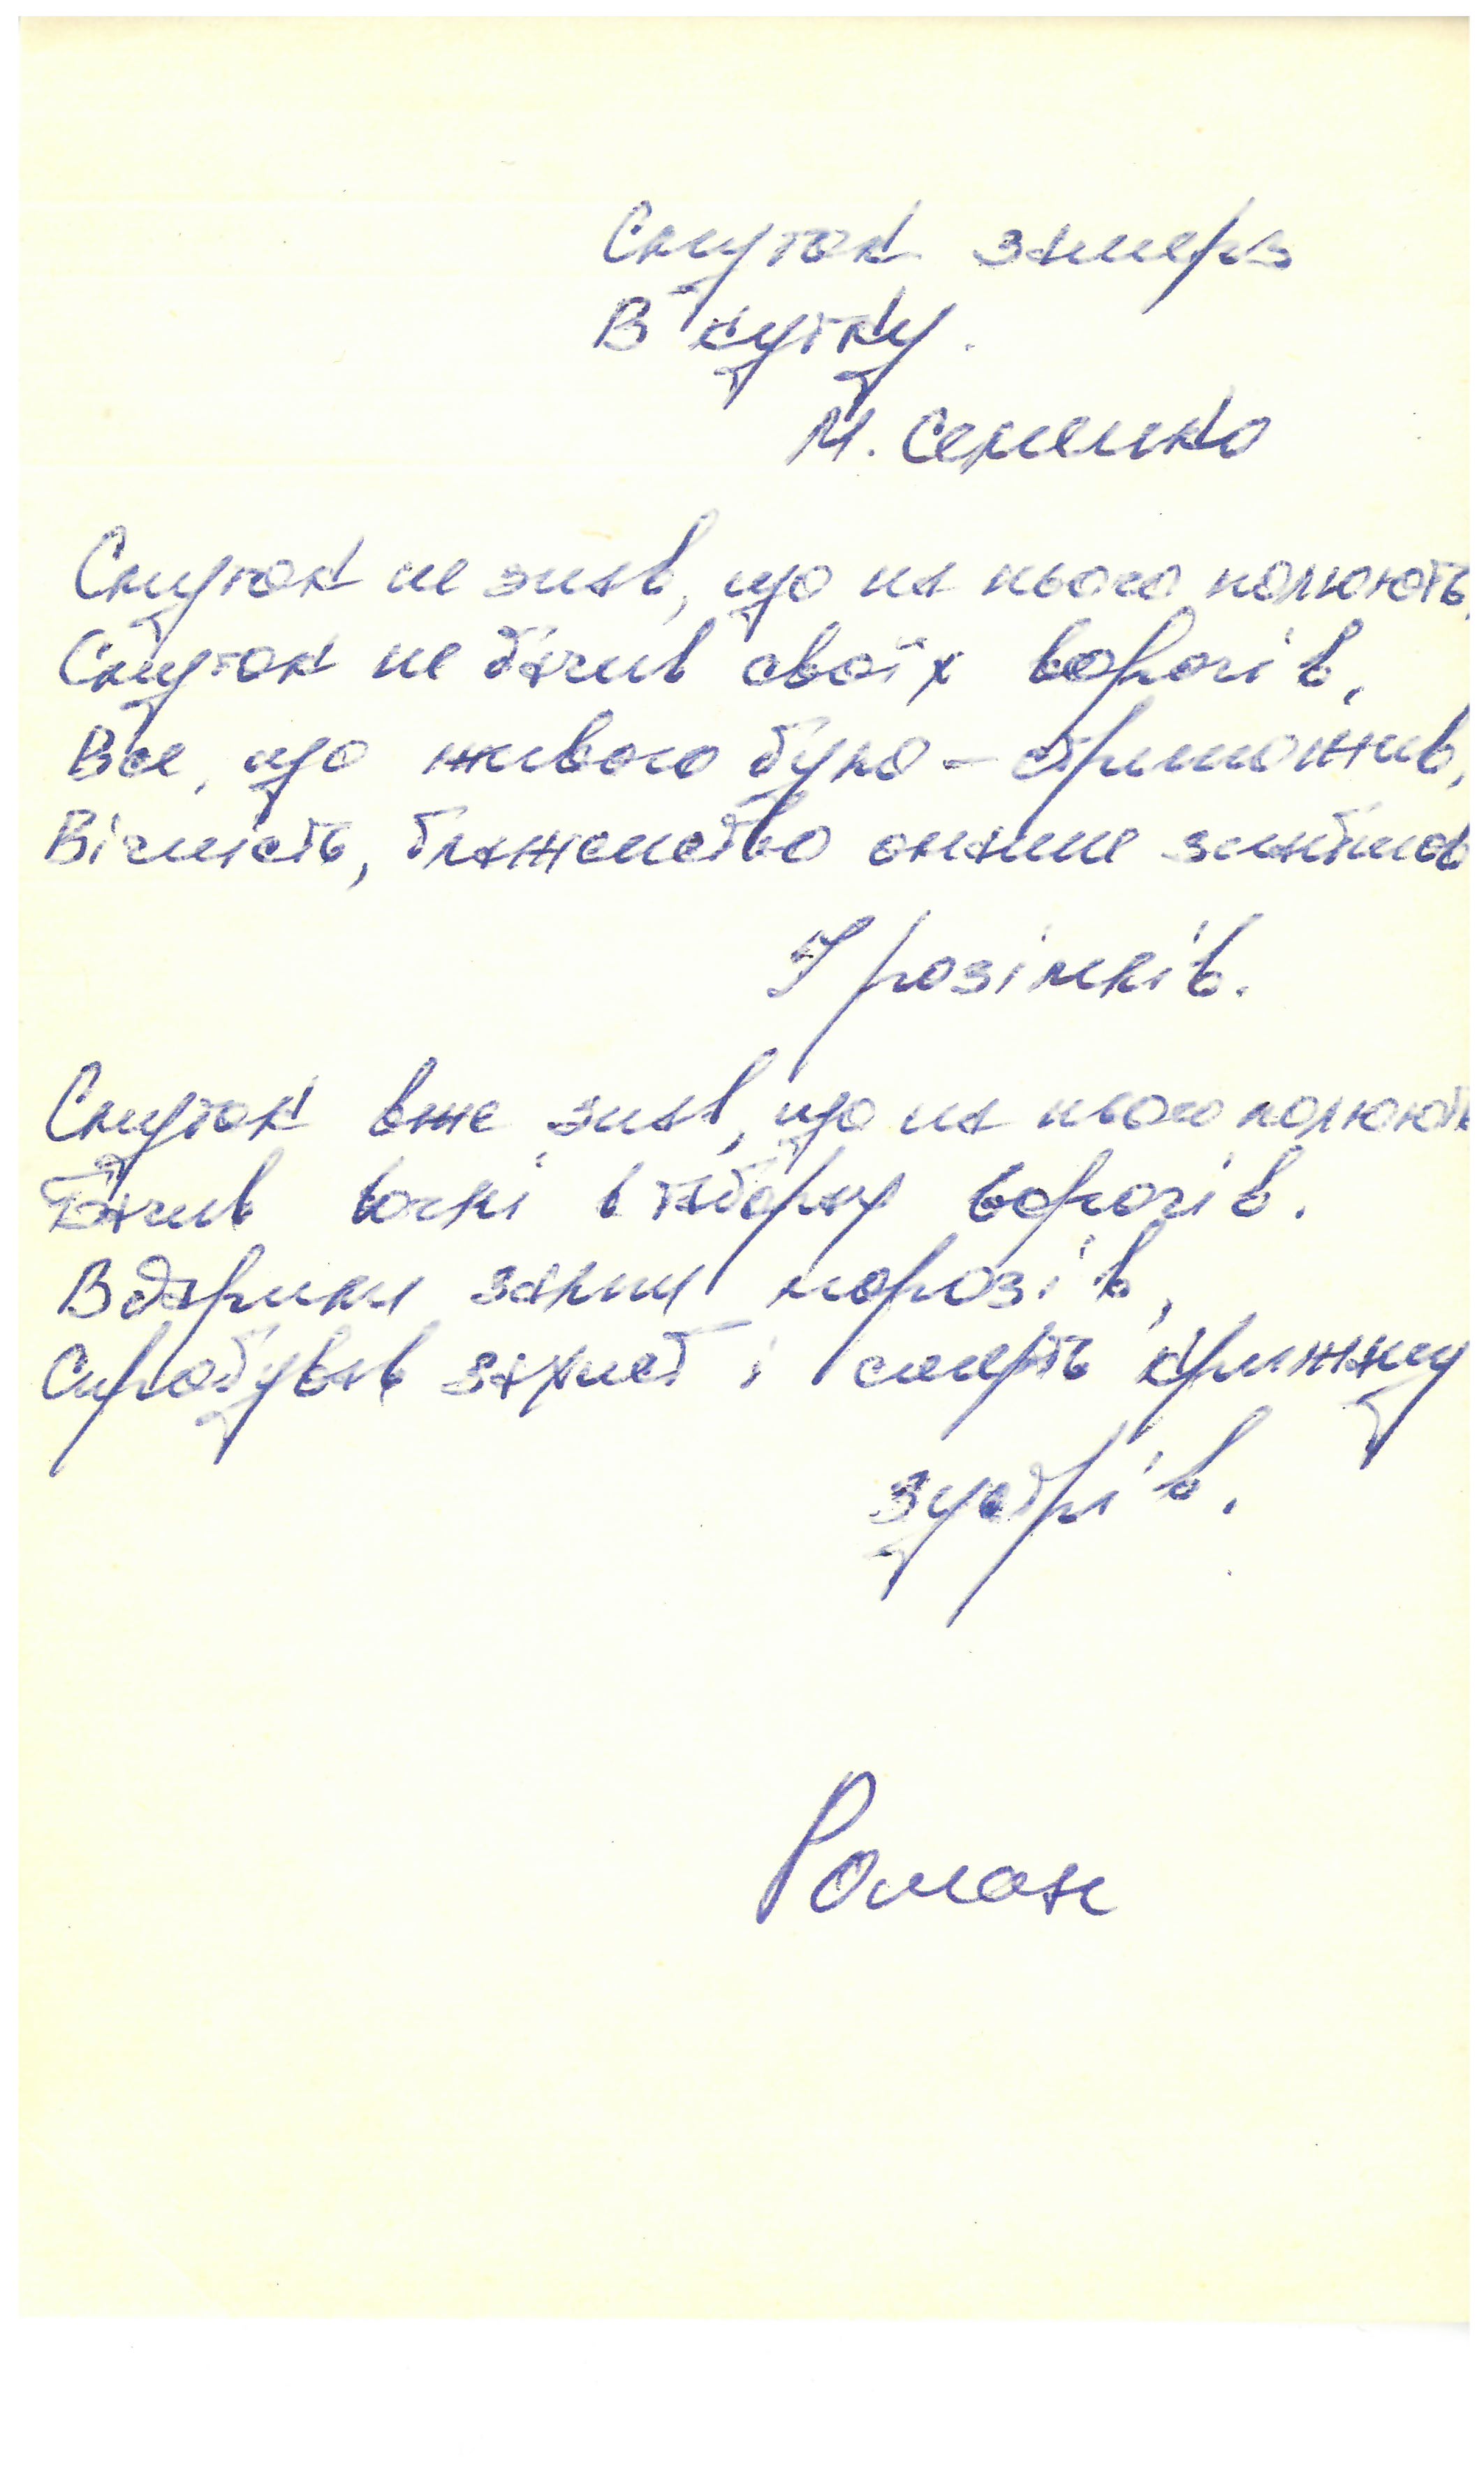 Смуток замерз
В кутку.
М. Семенко
Смуток не знав, що на нього полюють,
Смуток не бачив своїх ворогів,
Все, що живого було – стриножив,
Вічність, блаженство
У розімлів.
Смуток вже знав, що на нього полюють
Бачив вогні в таборах ворогів.
Вдарили залпи морозів,
Спробував захист і смерть крижану
зустрів.
Роман